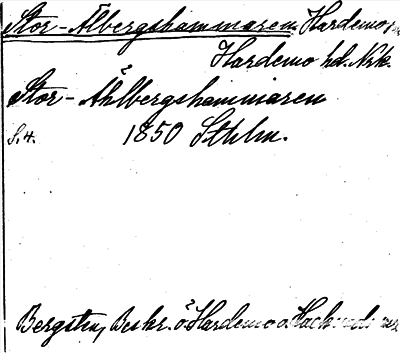 Stor-Älbergshammaren, Hardemo sn
Hardemo hd. Nrk.
Stor-Åhlbergshammaren
S. 4. 1850 Sthlm.
Bergsten, Beskr. ö. Hardemo o.